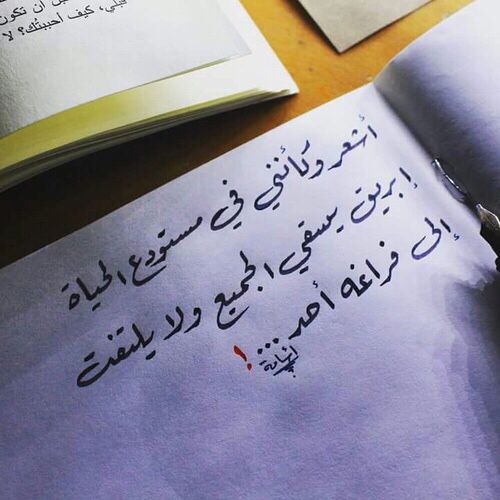 بين أن تكون
قبلي، كيف أحببتك؟ لا
أشعر وكأنني في مستودع الحياة
إبريق يسقي الجميع ولا يلتفت
إلى فراغه أحد...!